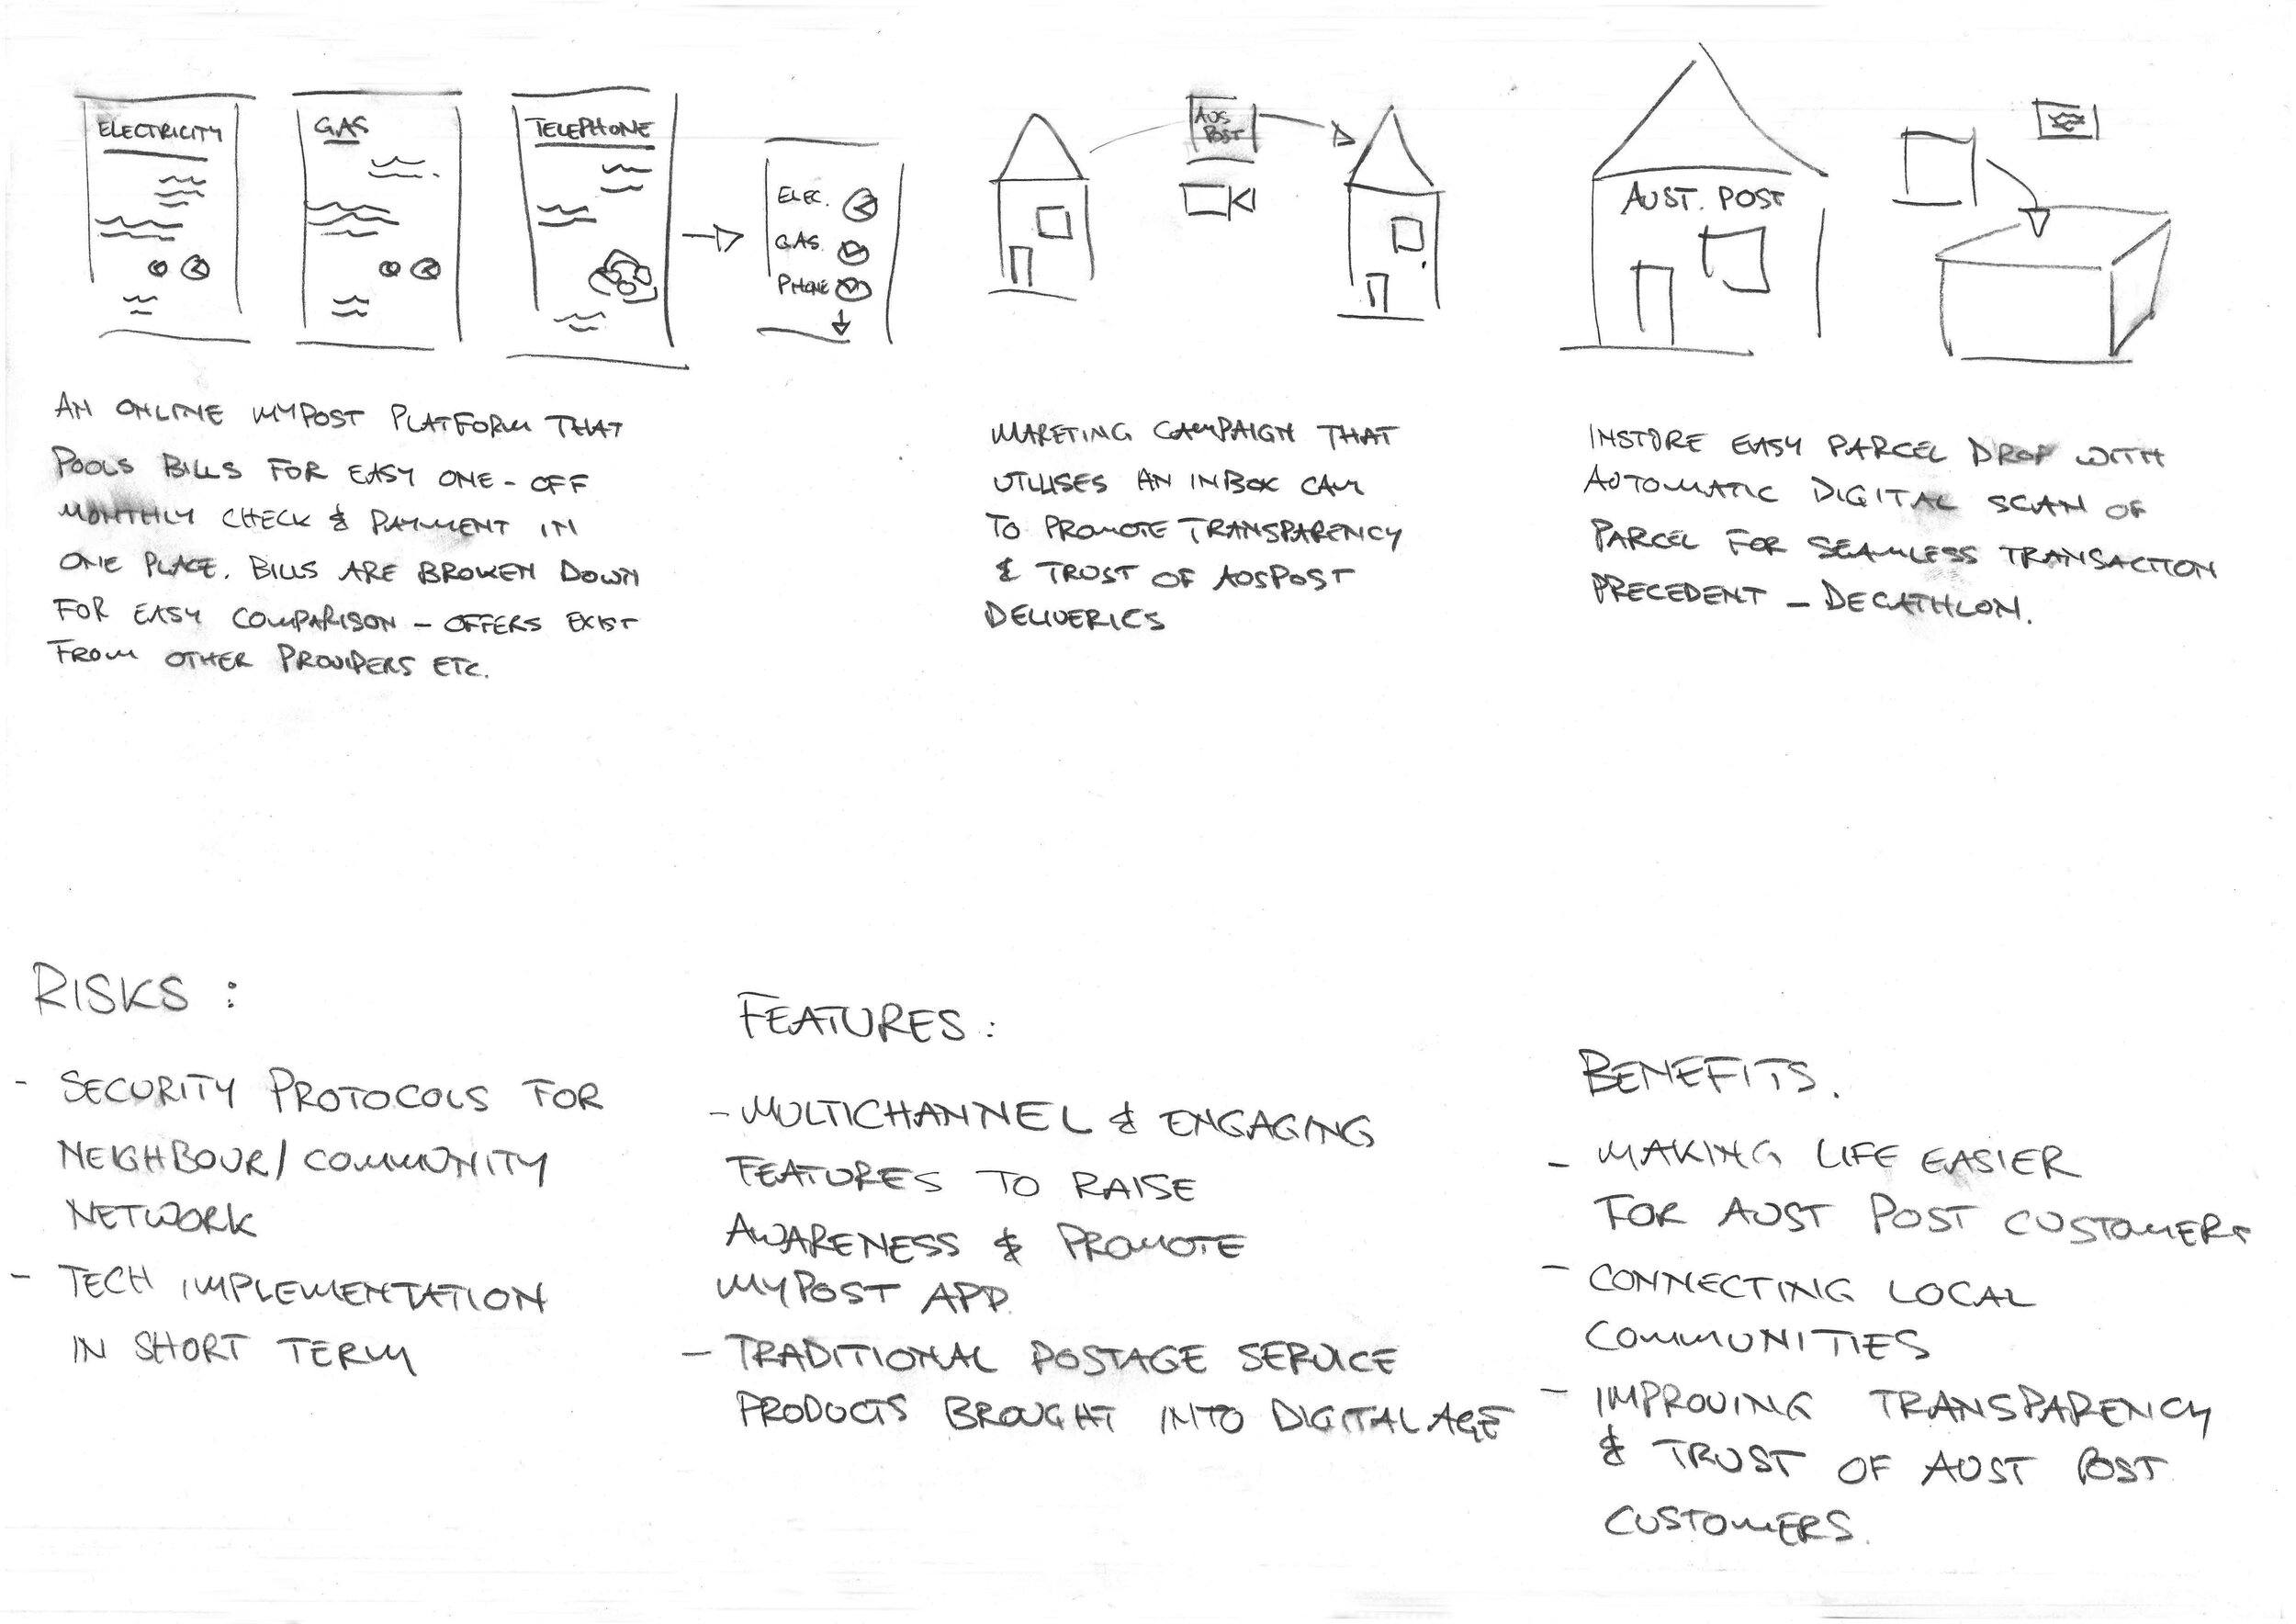 ELECTRICITY
GAS
TELEPHONE
ELEC.
GAS
PHONE
AUS
POST
AUST. POST
AN ONLINE MYPOST PLATFORM THAT
POOLS BILLS FOR EASY ONE-OFF
MONTHLY CHECK & PAYMENT IN
ONE PLACE. BILLS ARE BROKEN DOWN
FOR EASY COMPARISON - OFFERS EXIST
FROM OTHER PROVIDERS ETC.
MARETING CAMPAIGN THAT
UTILISES AN INBOX CAM
TO PROMOTE TRANSPARENCY
& TRUST OF AUSPOST
DELIVERIES
INSTORE EASY PARCEL DROP WITH
AUTOMATIC DIGITAL SCAN OF
PARCEL FOR SEAMLESS TRANSACTION
PRECEDENT - DECATHLON.
RISKS :
- SECURITY PROTOCOLS FOR
NEIGHBOUR/COMMUNITY
NETWORK
- TECH IMPLEMENTATION
IN SHORT TERM
FEATURES :
- MULTICHANNEL & ENGAGING
FEATURES TO RAISE
AWARENESS & PROMOTE
MYPOST APP.
- TRADITIONAL POSTAGE SERVICE
PRODUCTS BROUGHT INTO DIGITAL AGE
BENEFITS.
- MAKING LIFE EASIER
FOR AUST POST CUSTOMERS
- CONNECTING LOCAL
COMMUNITIES
- IMPROVING TRANSPARENCY
& TRUST OF AUST POST
CUSTOMERS.